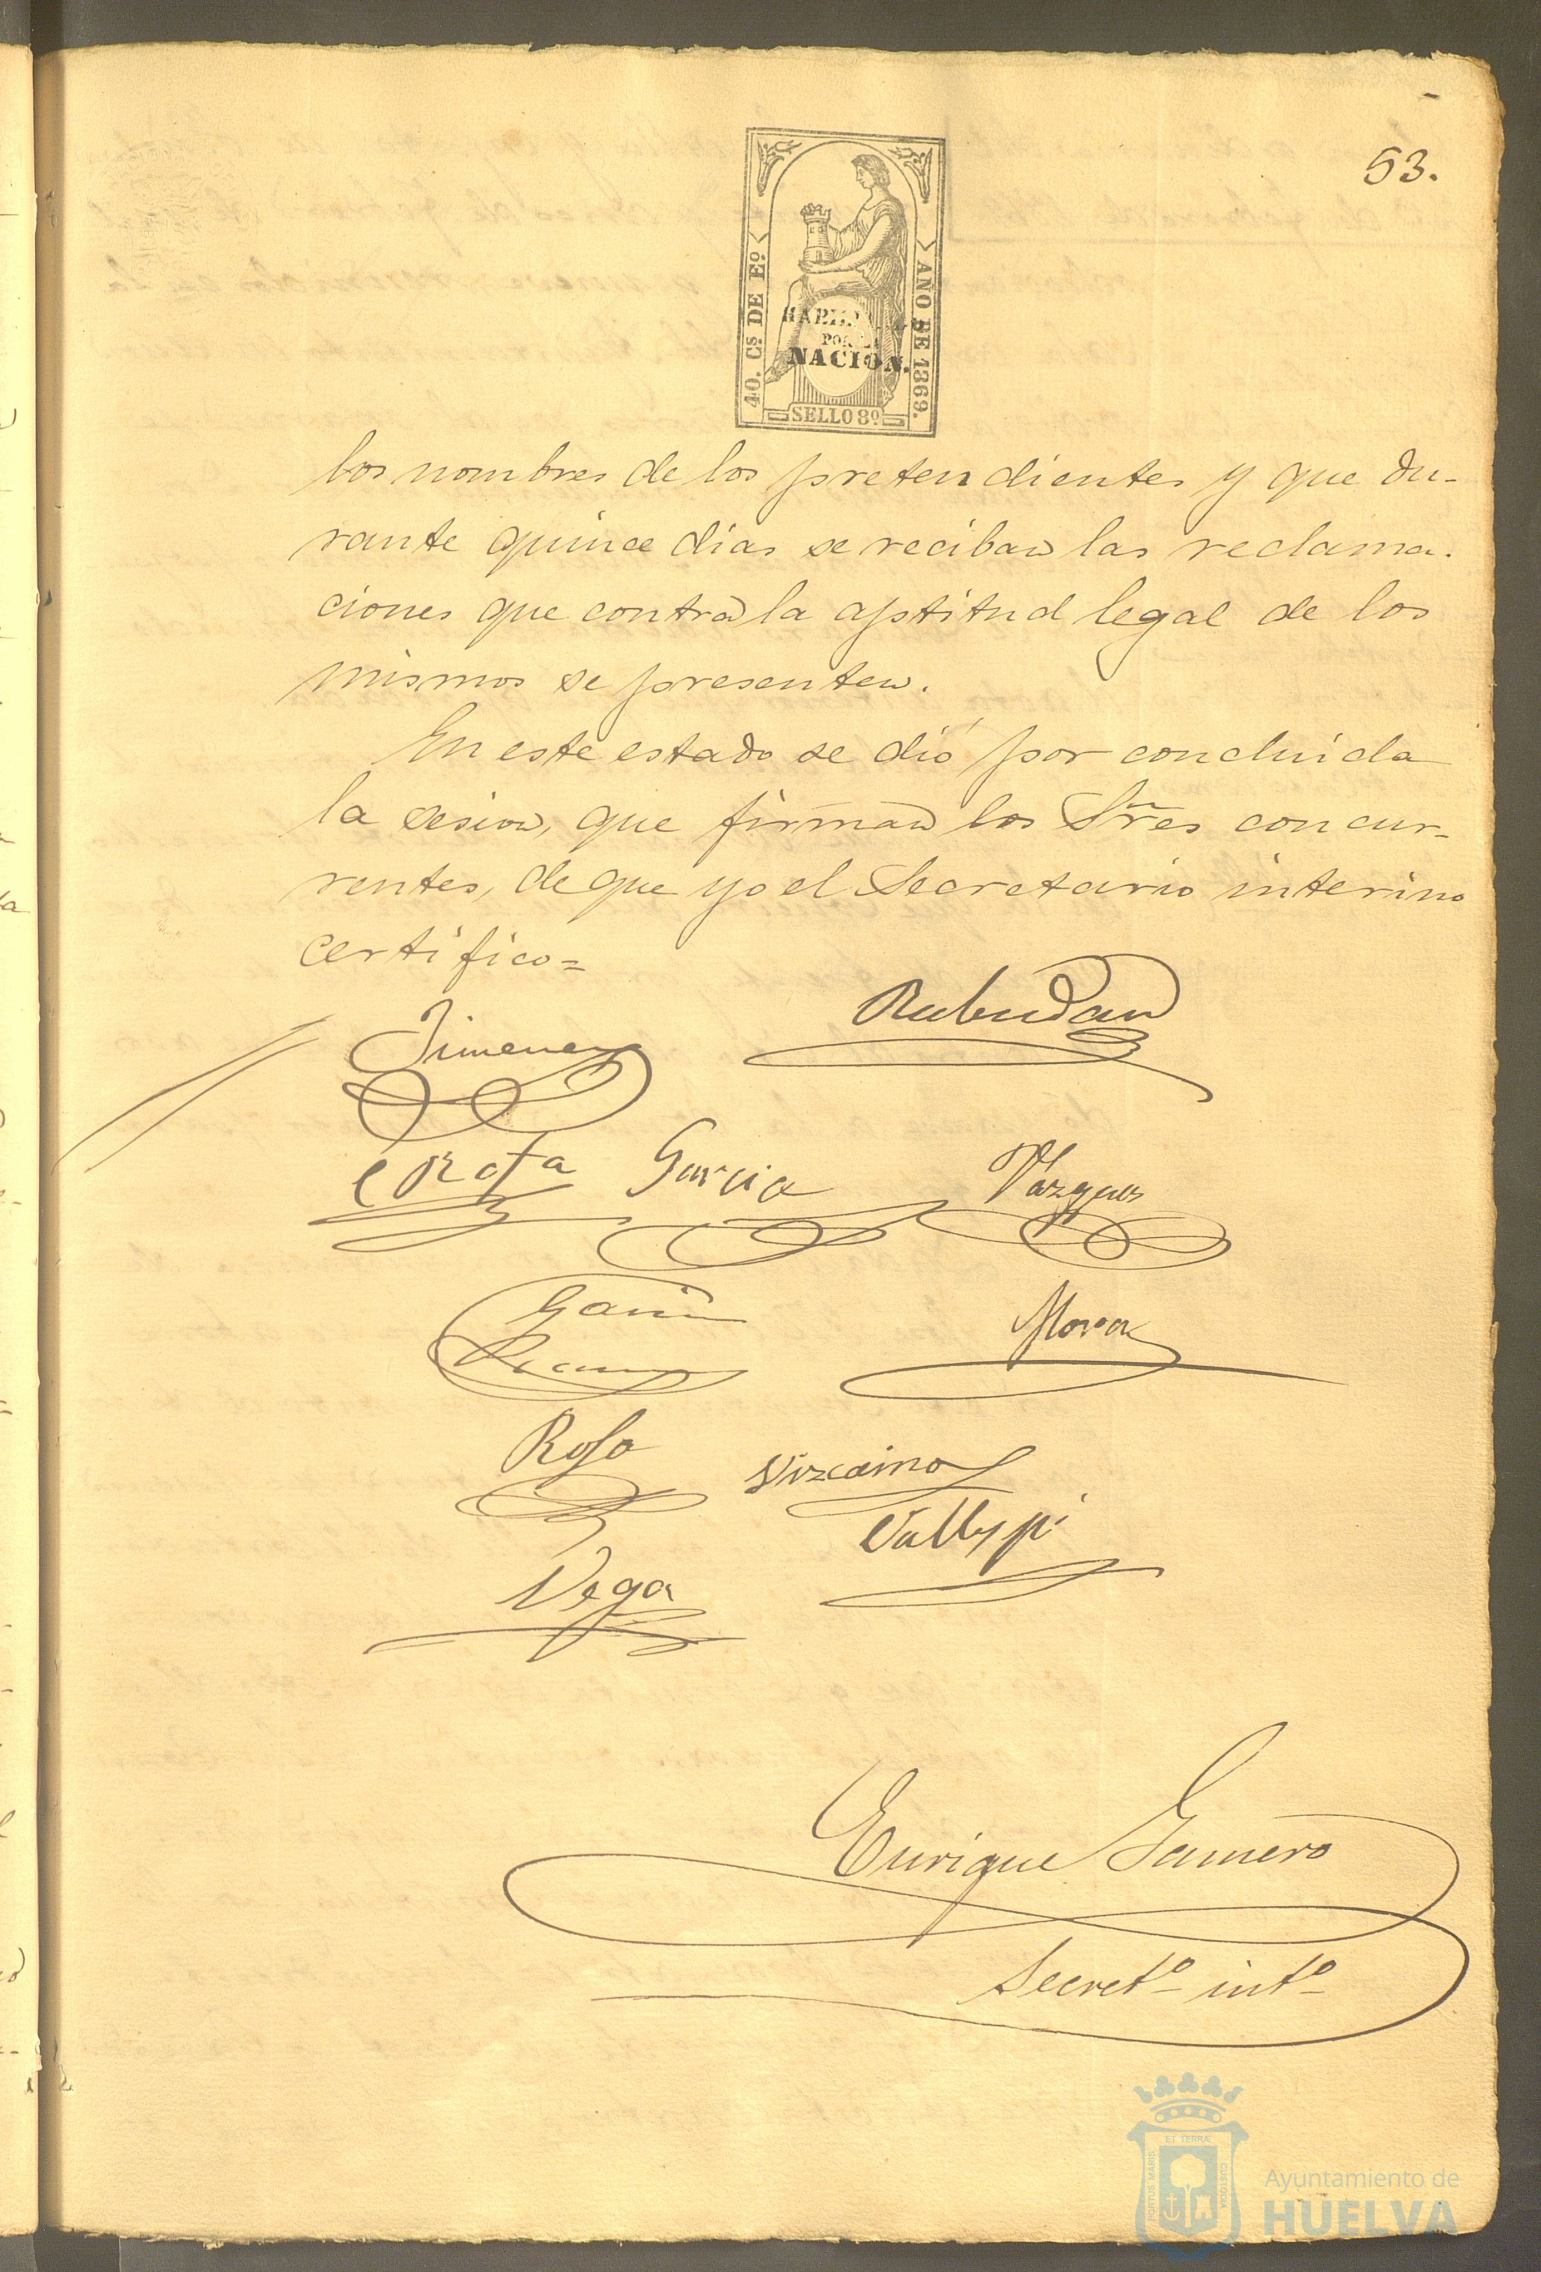 53.
40. Cs DE Eo.
AÑO DE 1869.
POR LA
NACION.
SELLO 8º
los nombres de los pretendientes y que du-
rante quince dias se reciban las reclama-
ciones que contra la aptitud legal de los
mismos se presenten.
En este estado se dió por concluida
la sesion, que firman los Sres concur-
rentes, de que yo el Secretario interino
certifico=
Jimenez
Rota Garcia Vazquez
Garcia
Mora
Rofa Vizcaino
Vega
Enrique Gamero
Secretº intº
PORTUS MARIS
ET TERRÆ
CUSTODIA
Ayuntamiento de
HUELVA